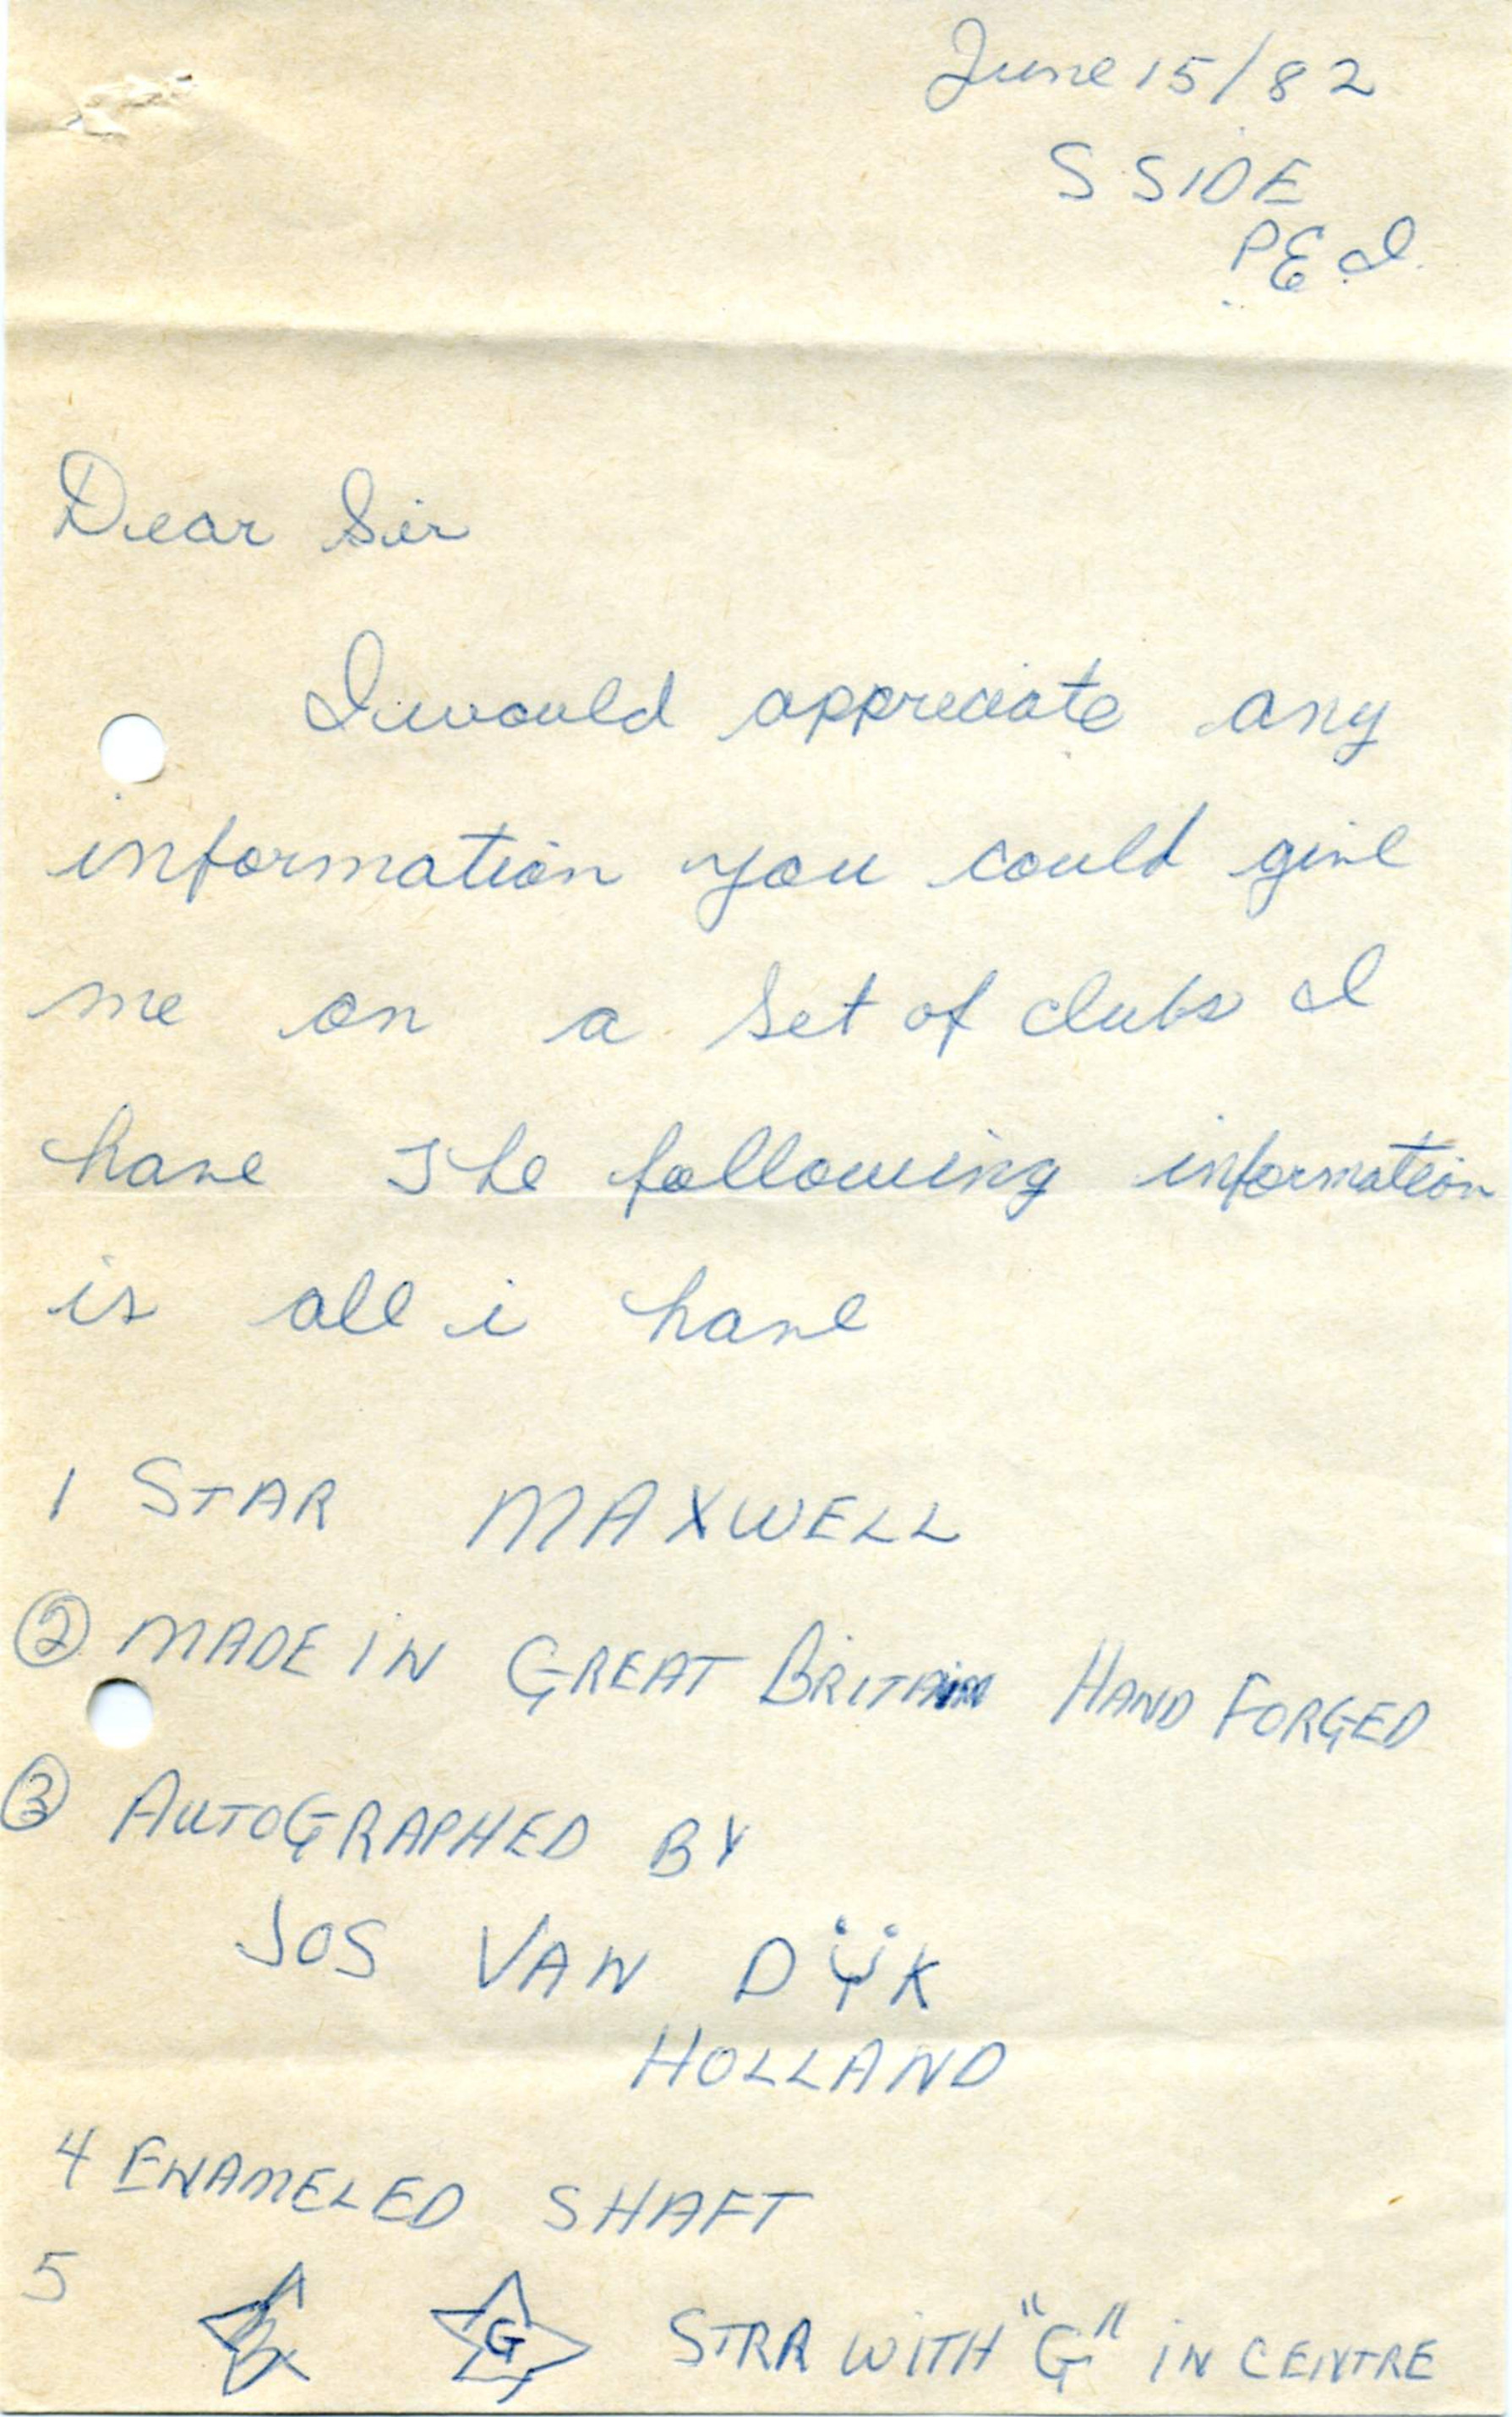 June 15/82
S SIDE
P.E.I.
Dear Sir
I would appreciate any
information you could give
me on a set of clubs I
have The following information
is all i have
1 STAR MAXWELL
② MADE IN GREAT BRITAIN HAND FORGED
③ AUTOGRAPHED BY
JOS VAN DŸK
HOLLAND
4 ENAMELED SHAFT
5 G STAR WITH "G" IN CENTRE